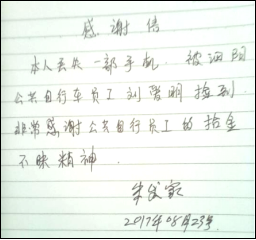 感谢信
本人丢失一部手机,被泗阳
公共自行车员工刘爱明捡到
非常感谢公共自行员工的拾金
不昧精神.
朱
2017年08月23号